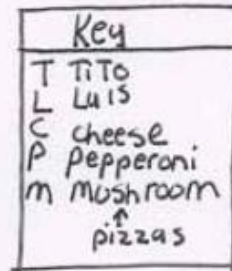 Key
T TiTo
L Luis
C cheese
P pepperoni
m mushroom
↑
pizzas